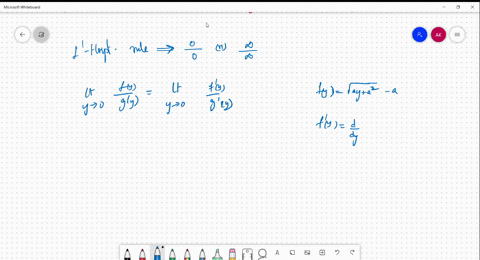 Microsoft Whiteboard
L'-Hospt. rule ⟹ 0/0 (or) ∞/∞
Lt y→0 f(y)/g(y) = Lt y→0 f'(y)/g'(y)
f(y) = √(ay+a²) - a
f'(y) = d/dy
AK